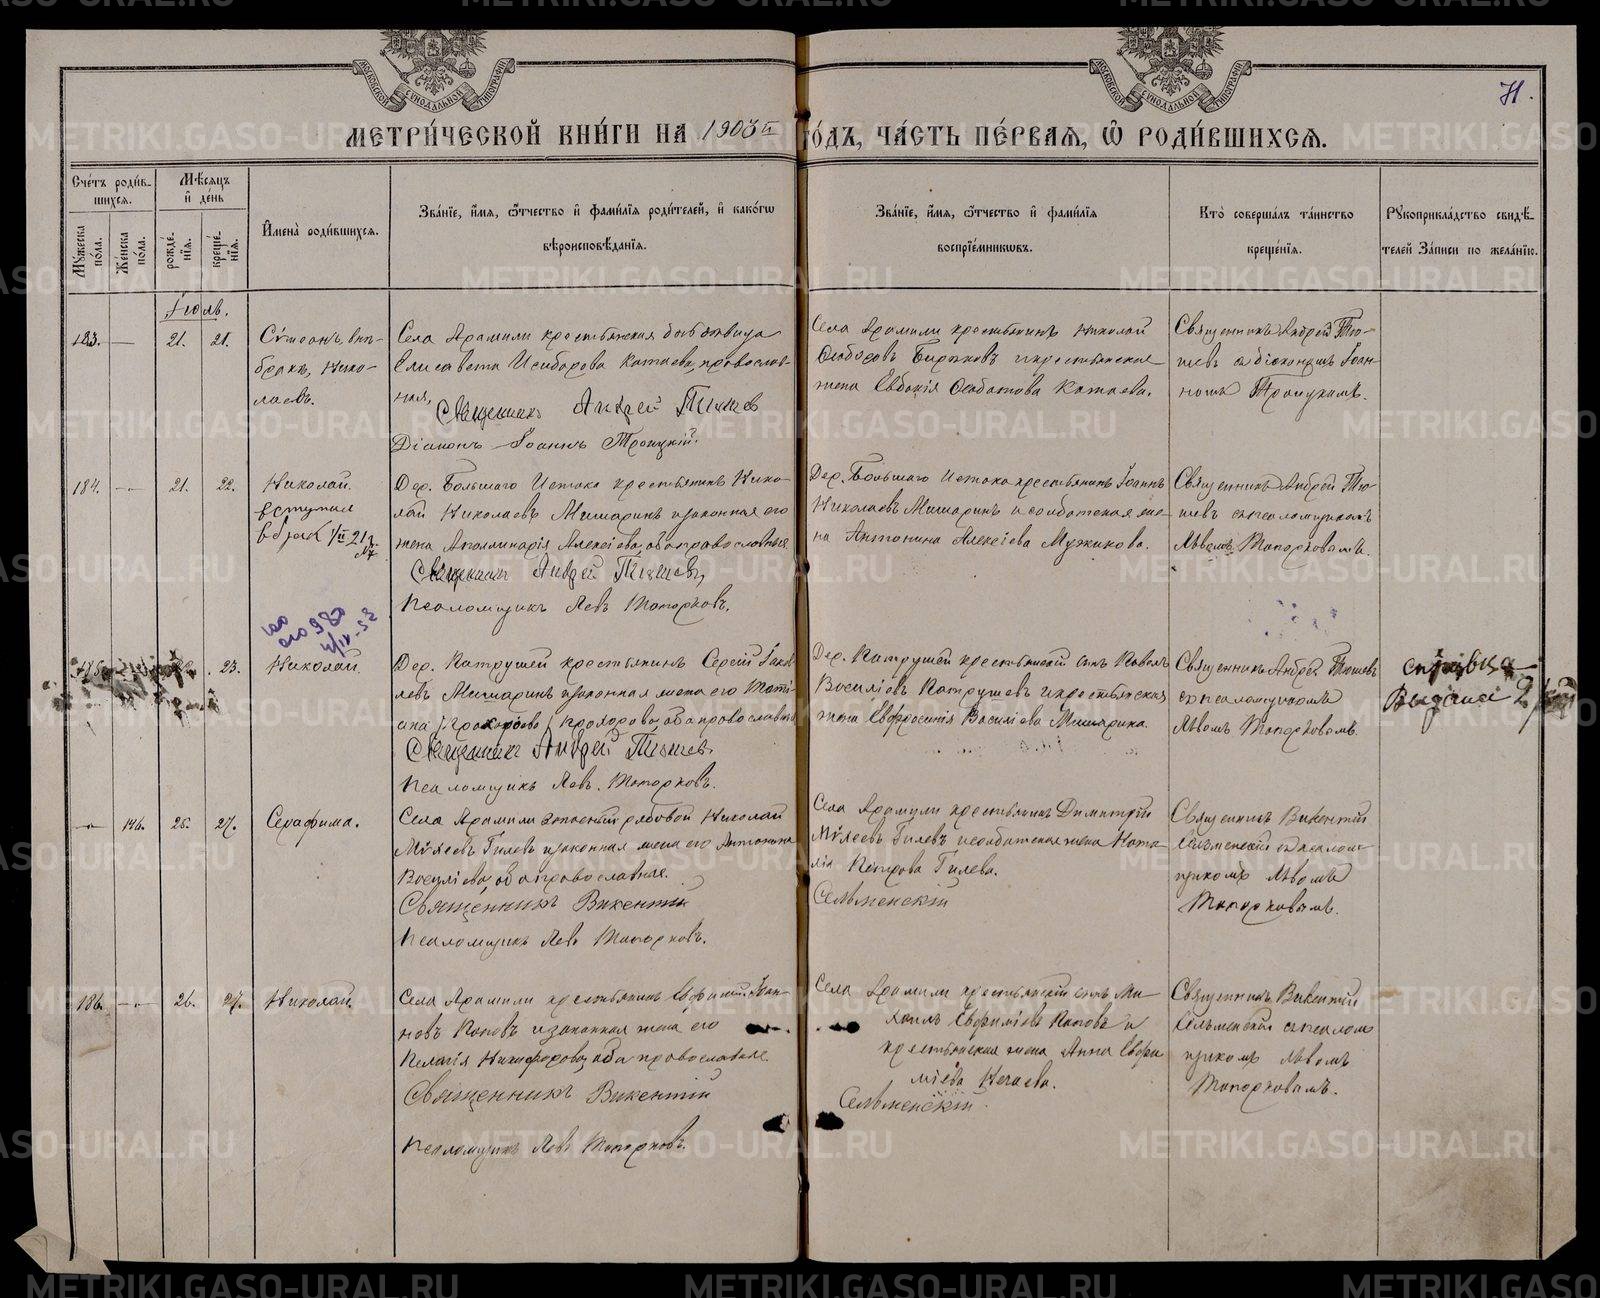 МЕТРИ́ЧЕСКОЙ КНИ́ГИ НА 1903й
ГО́ДЪ, ЧА́СТЬ ПЕ́РВАЯ, Ѡ РОДИ́ВШИХСЯ.
Сче́тъ роди́в-
шихся.
Мѣ́сяцъ
и҆ де́нь
Мꙋ́жеска по́ла.
Же́нска по́ла.
рожде́-
нїя.
креще́-
нїя.
И҆мена̀ роди́вшихся.
Зва́нїе, и҆́мя, ѻ҆́тчество и҆ фами́лїя роди́телей, и҆ како́гѡ
вѣроисповѣ́данїя.
Зва́нїе, и҆́мя, ѻ҆́тчество и҆ фами́лїя
воспрїе́мникѡвъ.
Кто̀ соверша́лъ та́инство
креще́нїя.
Рꙋкоприкла́дство свидѣ́-
телей за́писи по жела́нїю.
Іюль.
183. — 21. 21.
Сѵмеонъ, внѣ-
бračнъ, Нико-
лаевъ.
Села Арамили крестьянская дѣвица
Елисавета Исидорова Катаева, православ-
ная.
Священникъ Андрей Тюшев
Діаконъ Іоаннъ Троицкій.
Села Арамили крестьянинъ Николай
Бирюковъ и крестьянская
жена Евдокія Катаева.
Священникъ Андрей Тю-
шевъ съ діакономъ Іоан-
номъ Троицкимъ.
184. — 21. 22.
Николай.
вступил
в брак
Дер. Большаго Истока крестьянинъ Нико-
лай Николаевъ Мишаринъ и законная его
жена Аполлинарія Алексіева, оба православные
Священник Андрей Тюшев,
Псаломщикъ Левъ Топорковъ.
Дер. Большаго Истока крестьянинъ Іоаннъ
Николаевъ Мишаринъ и солдатская же-
на Антонина Алексіева Мужикова.
Священникъ Андрей Тю-
шевъ съ псаломщикомъ
Львомъ Топорковымъ.
185. 23.
Николай.
Дер. Патрушей крестьянинъ Сергій Іаков-
левъ Мишаринъ и законная жена его Тати-
ана Прохорова, оба православные
Священникъ Андрей Тюшев.
Псаломщикъ Левъ Топорковъ.
Дер. Патрушей крестьянскій сынъ Павелъ
Василіевъ Патрушевъ и крестьянская
жена Евфросинія Василіева Мишарина.
Священникъ Андрей Тюшевъ
съ псаломщикомъ
Львомъ Топорковымъ.
справка
Выдана
— 146. 25. 27.
Серафима.
Села Арамили запасный рядовой Николай
Мѵсеевъ Гилевъ и законная жена его Антонина
Василіева, оба православные.
Священникъ Викентій
Псаломщикъ Левъ Топорковъ.
Села Арамили крестьянинъ Димитрій
Мѵсеевъ Гилевъ и солдатская жена Ната-
лія Петрова Гилева.
Сельменскій
Священникъ Викентій
Сельменскій съ псалом-
щикомъ Львомъ
Топорковымъ.
186. — 26. 27.
Николай.
Села Арамили крестьянинъ Евфимій Іоан-
новъ Поповъ и законная жена его
Пелагія Никифорова, оба православные.
Священникъ Викентій
Псаломщикъ Левъ Топорковъ.
Села Арамили крестьянскій сынъ Ми-
хаилъ Евфиміевъ Поповъ и
крестьянская жена Анна Евфи-
міева Нечаева.
Сельменскій.
Священникъ Викентій
Сельменскій съ псалом-
щикомъ Львомъ
Топорковымъ.
METRIKI.GASO-URAL.RU